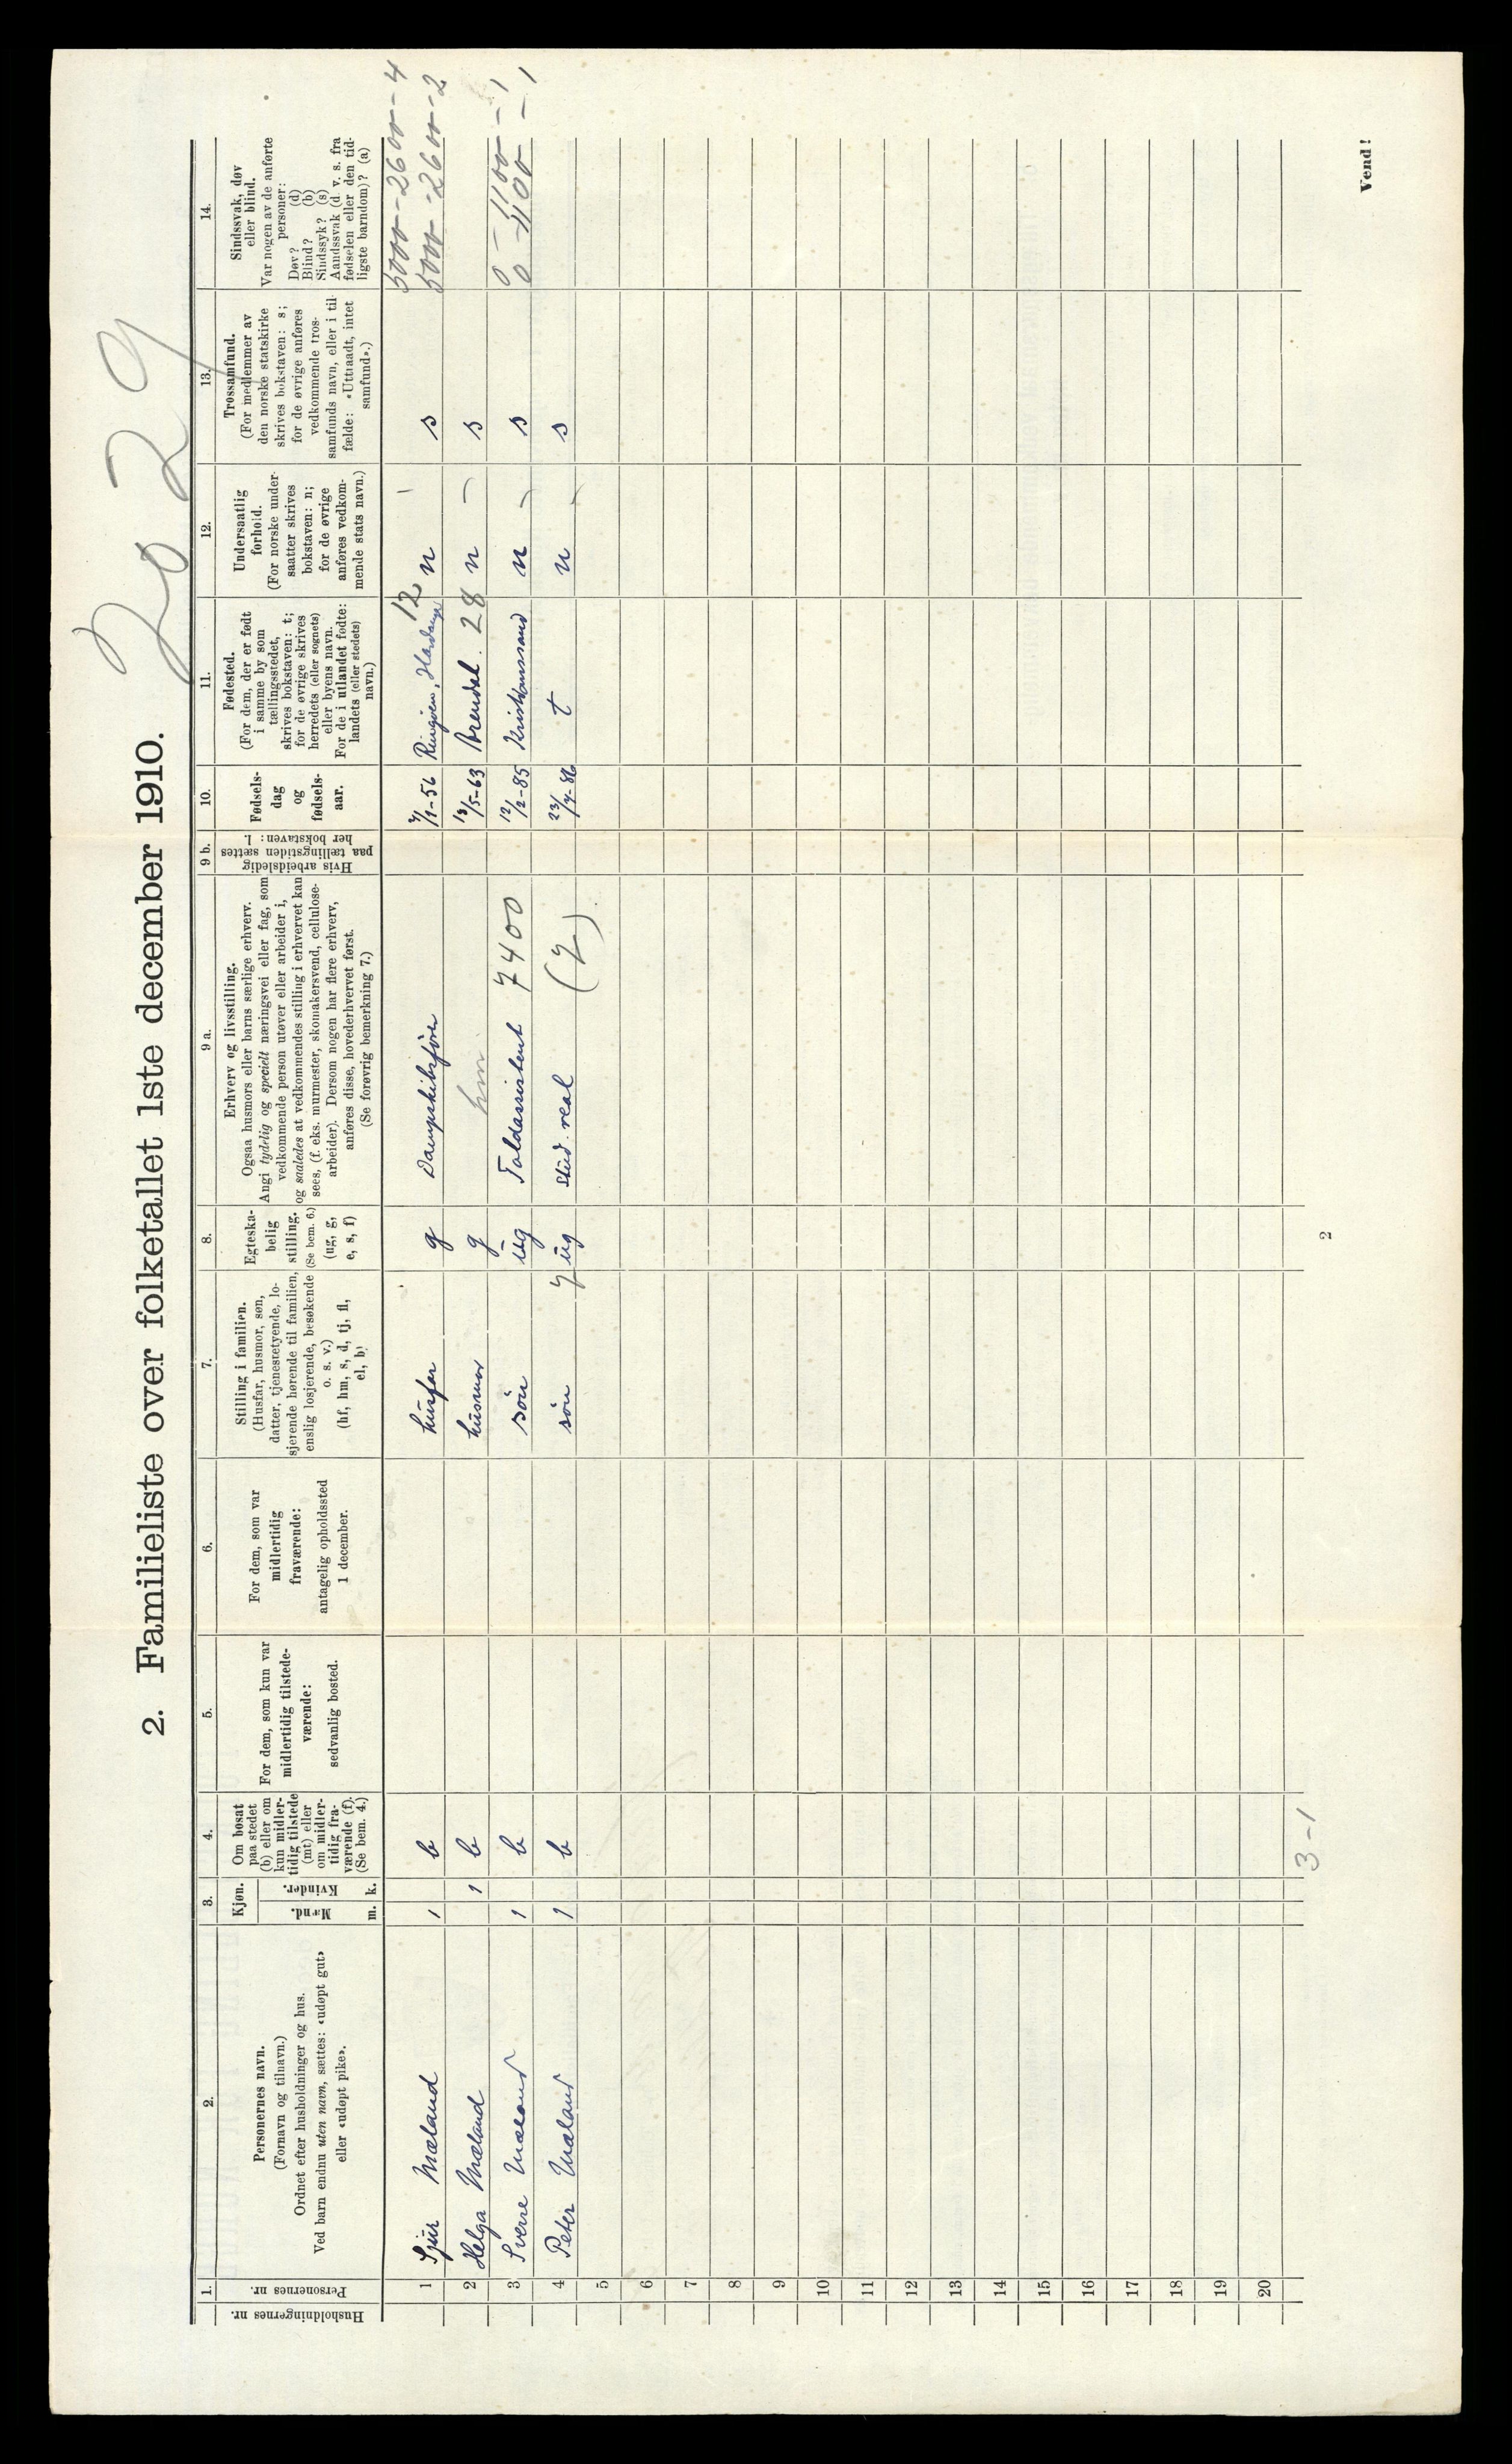 2029
2. Familieliste over folketallet 1ste december 1910.
1.
Husholdningernes nr.
Personernes nr.
2.
Personernes navn.
(Fornavn og tilnavn.)
Ordnet efter husholdninger og hus.
Ved barn endnu uten navn, sættes: «udøpt gut»
eller «udøpt pike».
3.
Kjøn.
Mænd.
Kvinder.
m.
k.
4.
Om bosat
paa stedet
(b) eller om
kun midler-
tidig tilstede
(mt) eller
om midler-
tidig fra-
værende (f).
(Se bem. 4.)
5.
For dem, som kun var
midlertidig tilstede-
værende:
sedvanlig bosted.
6.
For dem, som var
midlertidig
fraværende:
antagelig opholdssted
1 december.
7.
Stilling i familien.
(Husfar, husmor, søn,
datter, tjenestetyende, lo-
sjerende hørende til familien,
enslig losjerende, besøkende
o. s. v.)
(hf, hm, s, d, tj, fl,
el, b)
8.
Egteska-
belig
stilling.
(Se bem. 6.)
(ug, g,
e, s, f)
9 a.
Erhverv og livsstilling.
Ogsaa husmors eller barns særlige erhverv.
Angi tydelig og specielt næringsvei eller fag, som
vedkommende person utøver eller arbeider i,
og saaledes at vedkommendes stilling i erhvervet kan
sees, (f. eks. murmester, skomakersvend, cellulose-
arbeider). Dersom nogen har flere erhverv,
anføres disse, hovederhvervet først.
(Se forøvrig bemerkning 7.)
9 b.
Hvis arbeidsledig
paa tællingstiden sættes
her bokstaven: l.
10.
Fødsels-
dag
og
fødsels-
aar.
11.
Fødested.
(For dem, der er født
i samme by som
tællingsstedet,
skrives bokstaven: t;
for de øvrige skrives
herredets (eller sognets)
eller byens navn.
For de i utlandet fødte:
landets (eller stedets)
navn.)
12.
Undersaatlig
forhold.
(For norske under-
saatter skrives
bokstaven: n;
for de øvrige
anføres vedkom-
mende stats navn.)
13.
Trossamfund.
(For medlemmer av
den norske statskirke
skrives bokstaven: s;
for de øvrige anføres
vedkommende tros-
samfunds navn, eller i til-
fælde: «Uttraadt, intet
samfund».)
14.
Sindssvak, døv
eller blind.
Var nogen av de anførte
personer:
Døv? (d)
Blind? (b)
Sindssyk? (s)
Aandssvak (d. v. s. fra
fødselen eller den tid-
ligste barndom)? (a)
1 Sjur Mæland 1 b husfar g Dampskibsfører 7/1-56 Ringøen, Hardanger 12 n s 5000-2600-4
2 Helga Mæland 1 b husmor g hm 19/5-63 Arendal 28 n s 5000-2600-2
3 Sverre Mæland 1 b søn ug Toldassistent 7400 12/2-85 Kristianssand n s 0-1100-1
4 Peter Mæland 1 b søn ug stud. real 23/7-86 t n s 0-1100-1
5
6
7
8
9
10
11
12
13
14
15
16
17
18
19
20
3-1
2
Vend!